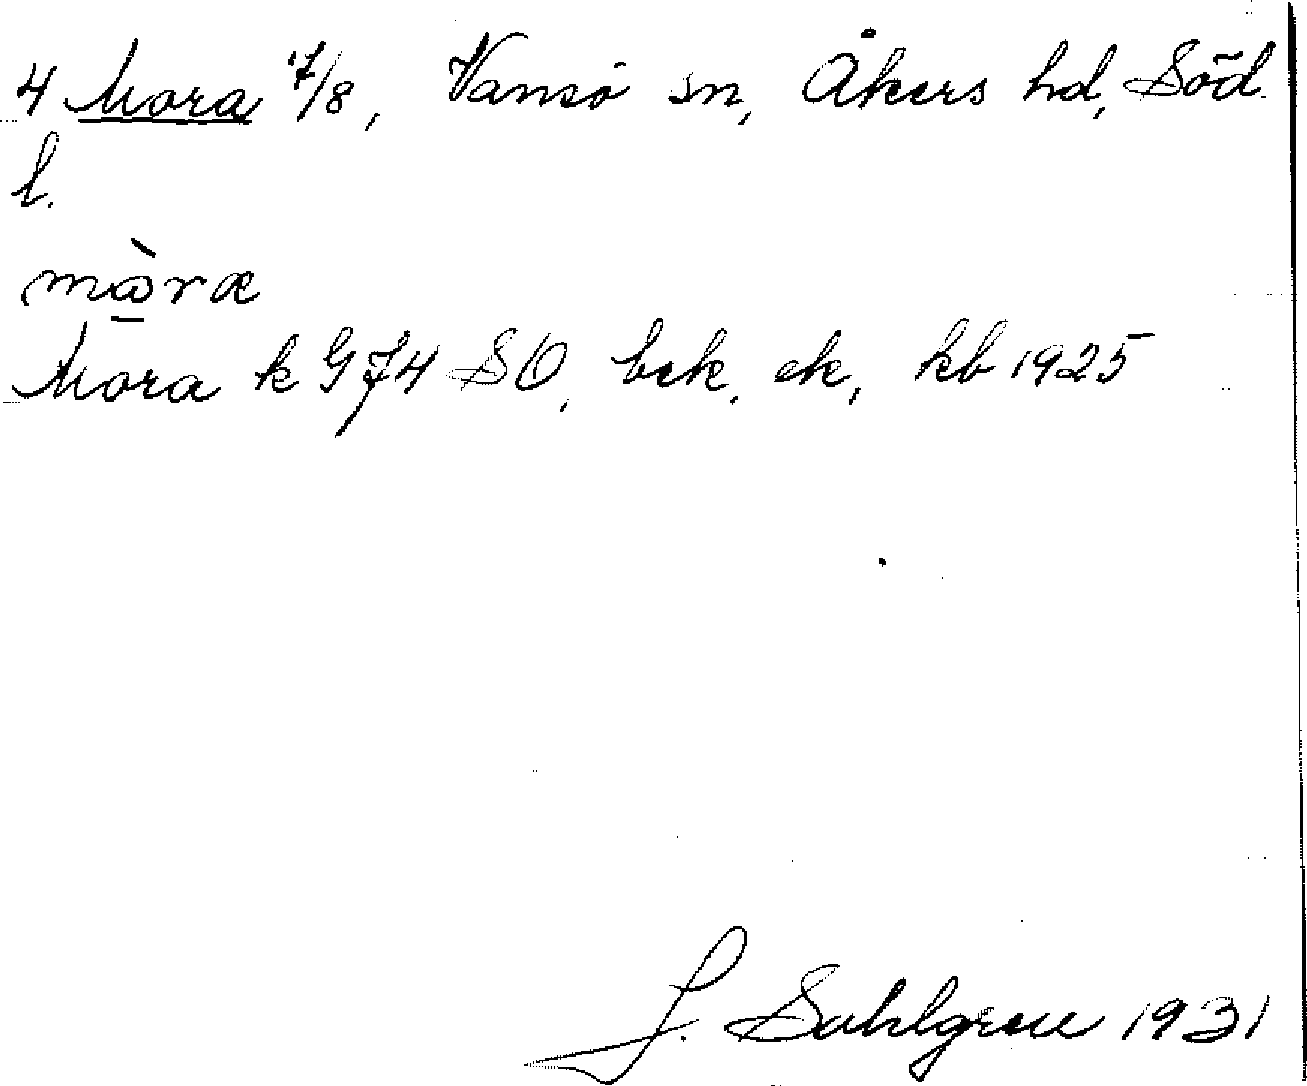 4 Mora 7/8, Vansö sn, Åkers hd, Söd.
l.
mòra
Mora k G 74 SO, bek, ek, kb 1925
J. Sahlgren 1931